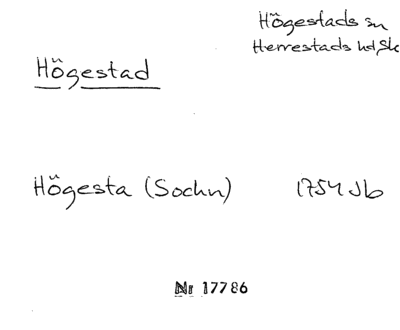 Högestads sn
Herrestads hd, Sk
Högestad
Högesta (Sochn) 1754 Jb
Nr 17786